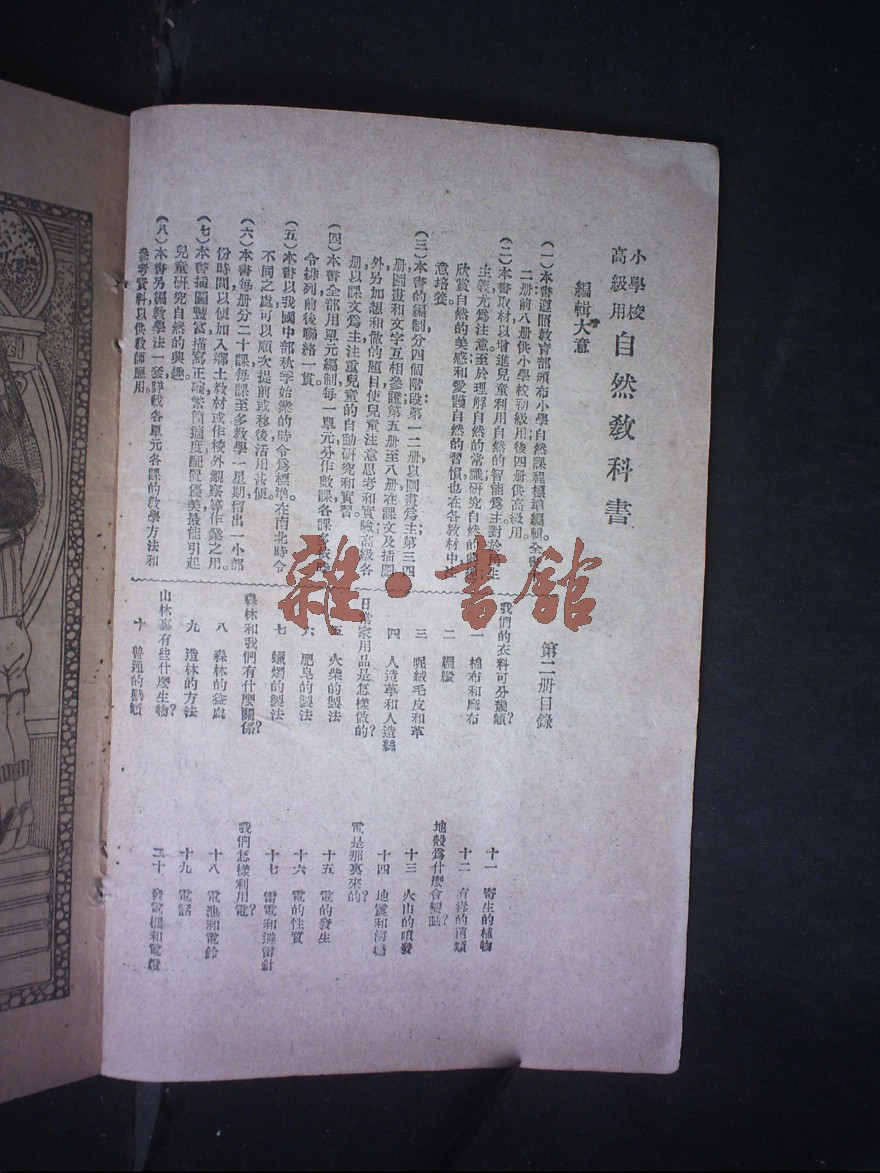 小學校
高級用
自然教科書
編輯大意
(一)本書遵照教育部頒布小學自然課程標準編輯全
二册前八册供小學校初級用後四册供高級用。
(二)本書取材以增進兒童利用自然的智能爲主對於
主義尤爲注意至於理解自然的常識研究自然的
欣賞自然的美感和愛護自然的習慣也在各教材中
意培養
(三)本書的編制分四個階段第一二册以圖畫爲主第三四
册圖畫和文字互相參證第五册至八册在課文及插圖
外另加想和做的題目使兒童注意思考和實驗高級各
册以課文爲主注重兒童的自動研究和實習。
(四)本書全部用單元編制每一單元分作數課各課
令排列前後聯絡一貫。
(五)本書以我國中部秋季始業的時令爲標準在南北時令
不同之處可以順次提前或移後活用甚便
(六)本書每册分二十課每課至多教學一星期留出一小部
份時間以便加入鄉土教材或作校外觀察等作業之用。
(七)本書插圖豐富描寫正確繁簡適度配置優美最能引起
兒童研究自然的興趣
(八)本書另編教學法一套詳載各單元各課的教學方法和
參考資料以供教師應用。
雜·書館
第二册目錄
我們的衣料可分幾類?
一 棉布和麻布
二 綢緞
三 呢絨毛皮和革
四 人造革和人造絲
日常家用品是怎樣做的?
五 火柴的製法
六 肥皂的製法
七 蠟燭的製法
森林和我們有什麼關係?
八 森林的益處
九 造林的方法
山林裏有些什麼生物?
十 普通的獸類
十一 寄生的植物
十二 有毒的菌類
地殼爲什麼會變動?
十三 火山的噴發
十四 地震和海嘯
電是那裏來的?
十五 電的發生
十六 電的性質
十七 雷電和避雷針
我們怎樣利用電?
十八 電池和電鈴
十九 電話
二十 發電機和電燈